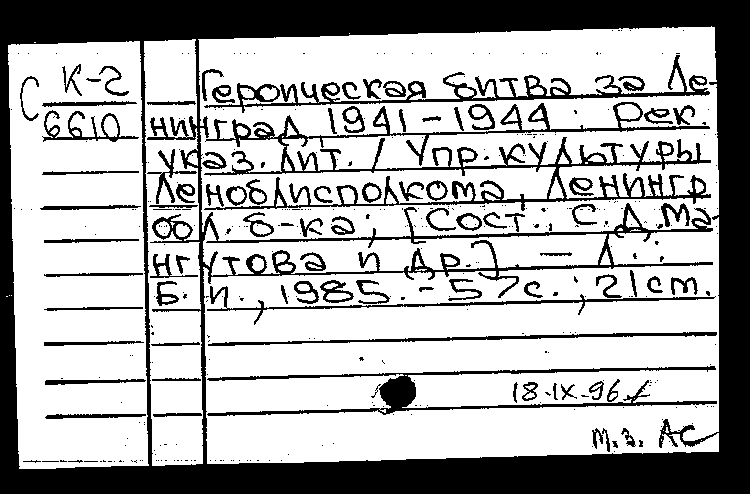 С К-2
6610
Героическая битва за Ле-
нинград, 1941-1944 : Рек.
указ. лит. / Упр. культуры
Леноблисполкома, Ленингр.
обл. б-ка; [Сост.: С.Д.Ма-
нгутова и др.]. — Л.:
Б.и., 1985. - 57с.; 21cm.
18.IX.96г
м.з. АС